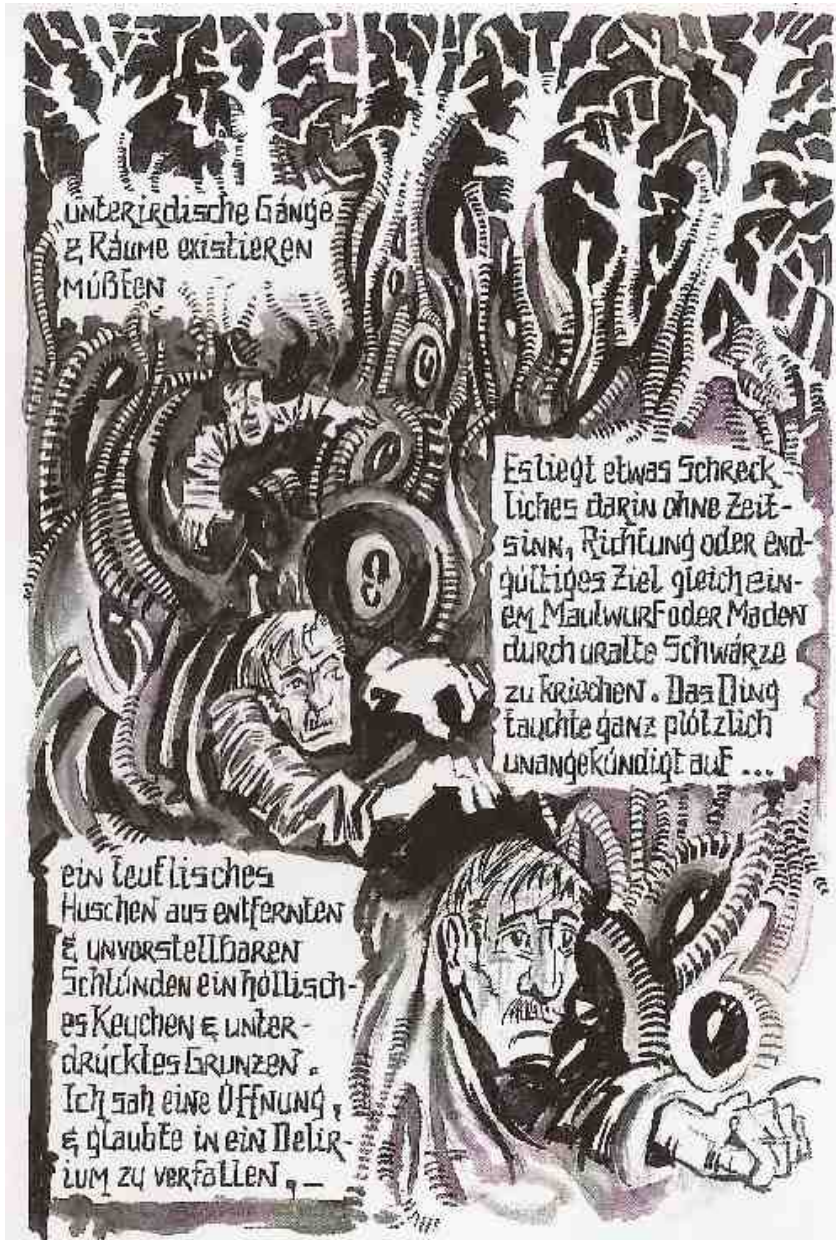 unterirdische Gänge
& Räume existieren
müßten
Es liegt etwas Schreck
liches darin ohne Zeit-
sinn, Richtung oder end-
gültiges Ziel gleich ein-
em Maulwurf oder Maden
durch uralte Schwärze
zu kriechen. Das Ding
tauchte ganz plötzlich
unangekündigt auf ...
ein teuflisches
Huschen aus entfernten
& unvorstellbaren
Schlünden ein höllisch-
es Keuchen & unter-
drücktes Grunzen.
Ich sah eine Öffnung,
& glaubte in ein Delir-
ium zu verfallen, _